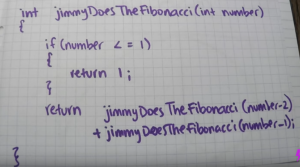 int jimmyDoesTheFibonacci(int number)
{
if (number <= 1)
{
return 1;
}
return jimmyDoesTheFibonacci(number-2)
+ jimmyDoesTheFibonacci(number-1);
}